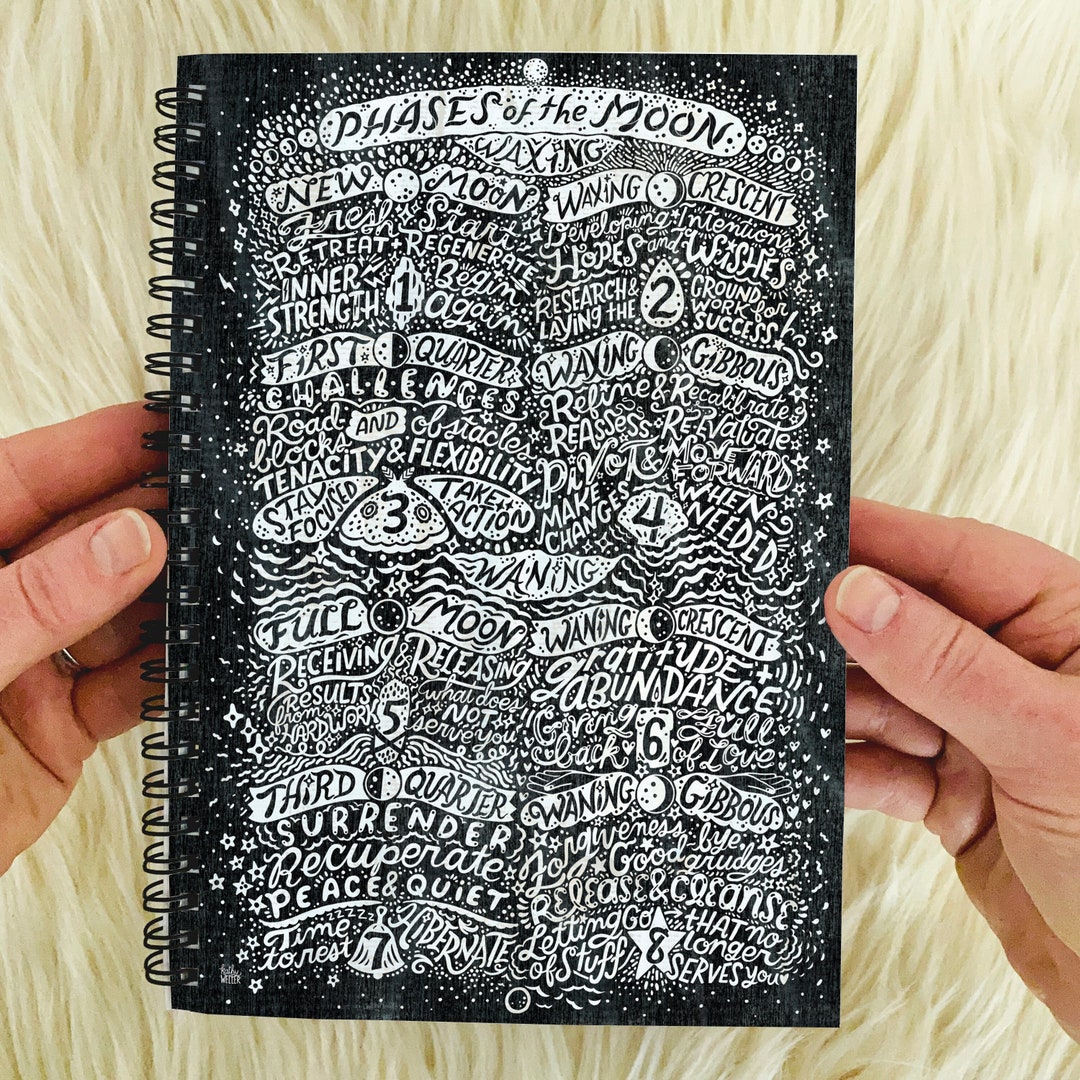 PHASES of the MOON
WAXING
NEW MOON
Fresh Start
RETREAT + REGENERATE
INNER STRENGTH
1
Begin again
WAXING CRESCENT
Developing Intentions
HOPES and WISHES
RESEARCH & LAYING THE
2
GROUND WORK for SUCCESS
FIRST QUARTER
CHALLENGES
Road blocks AND obstacles
TENACITY & FLEXIBILITY
STAY FOCUSED
3
TAKE ACTION
WAXING GIBBOUS
Refine & Recalibrate
REASSESS RE-EVALUATE
PIVOT & MOVE FORWARD
MAKE CHANGES
4
WHEN NEEDED
WANING
FULL MOON
RECEIVING & RELEASING
RESULTS from HARDWORK
5
what does NOT serve you
WANING CRESCENT
gratitude +
ABUNDANCE
Giving back
6
full of Love
THIRD QUARTER
SURRENDER
Recuperate
PEACE & QUIET
Time to rest
zzzzz
7
HIBERNATE
WANING GIBBOUS
Forgiveness, bye
Good grudges
RELEASE & CLEANSE
Letting GO of Stuff
8
THAT no longer SERVES you
Kathy WELLER